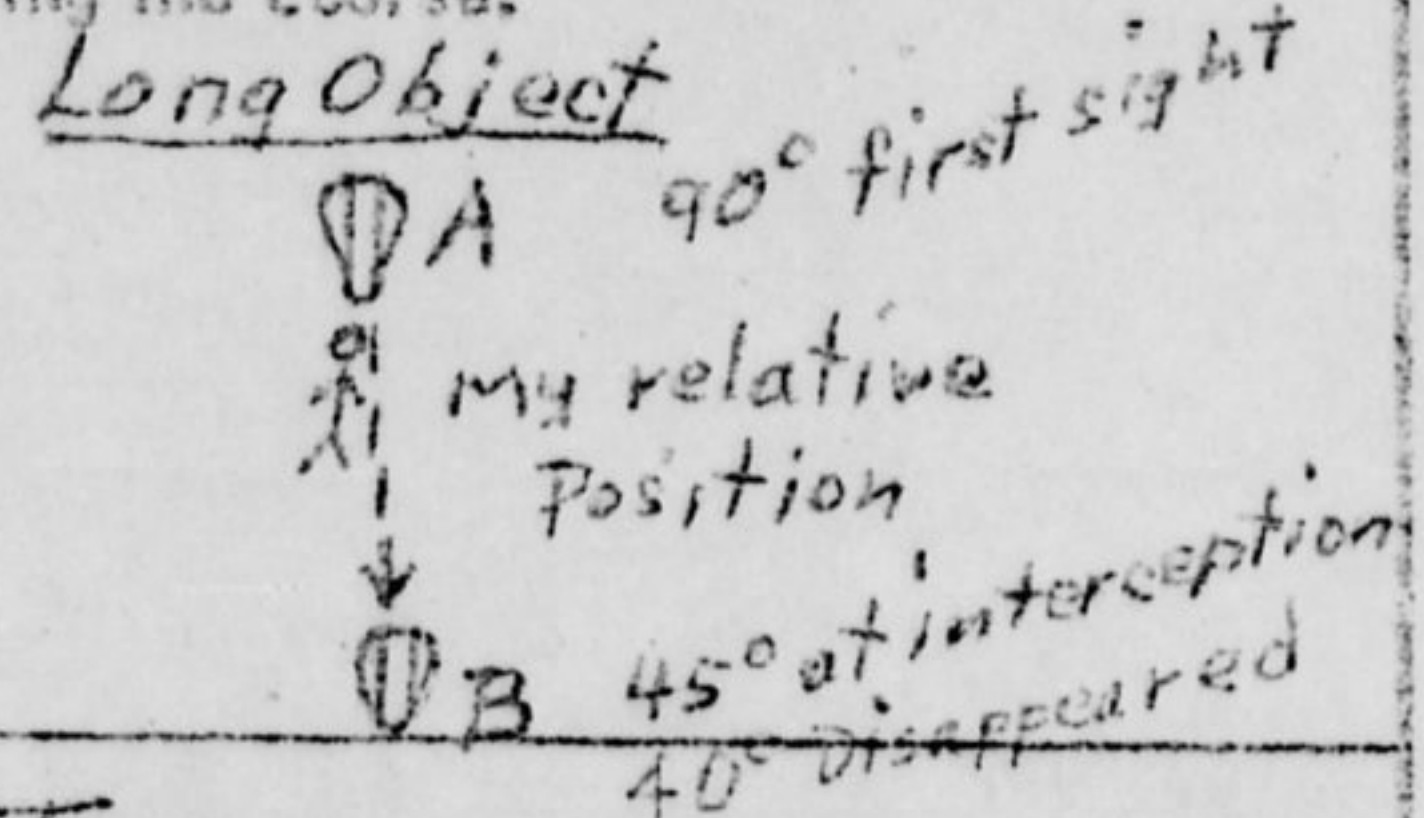 Long Object
A 90° first sight
My relative
Position
B 45° at interception
40° Disappeared